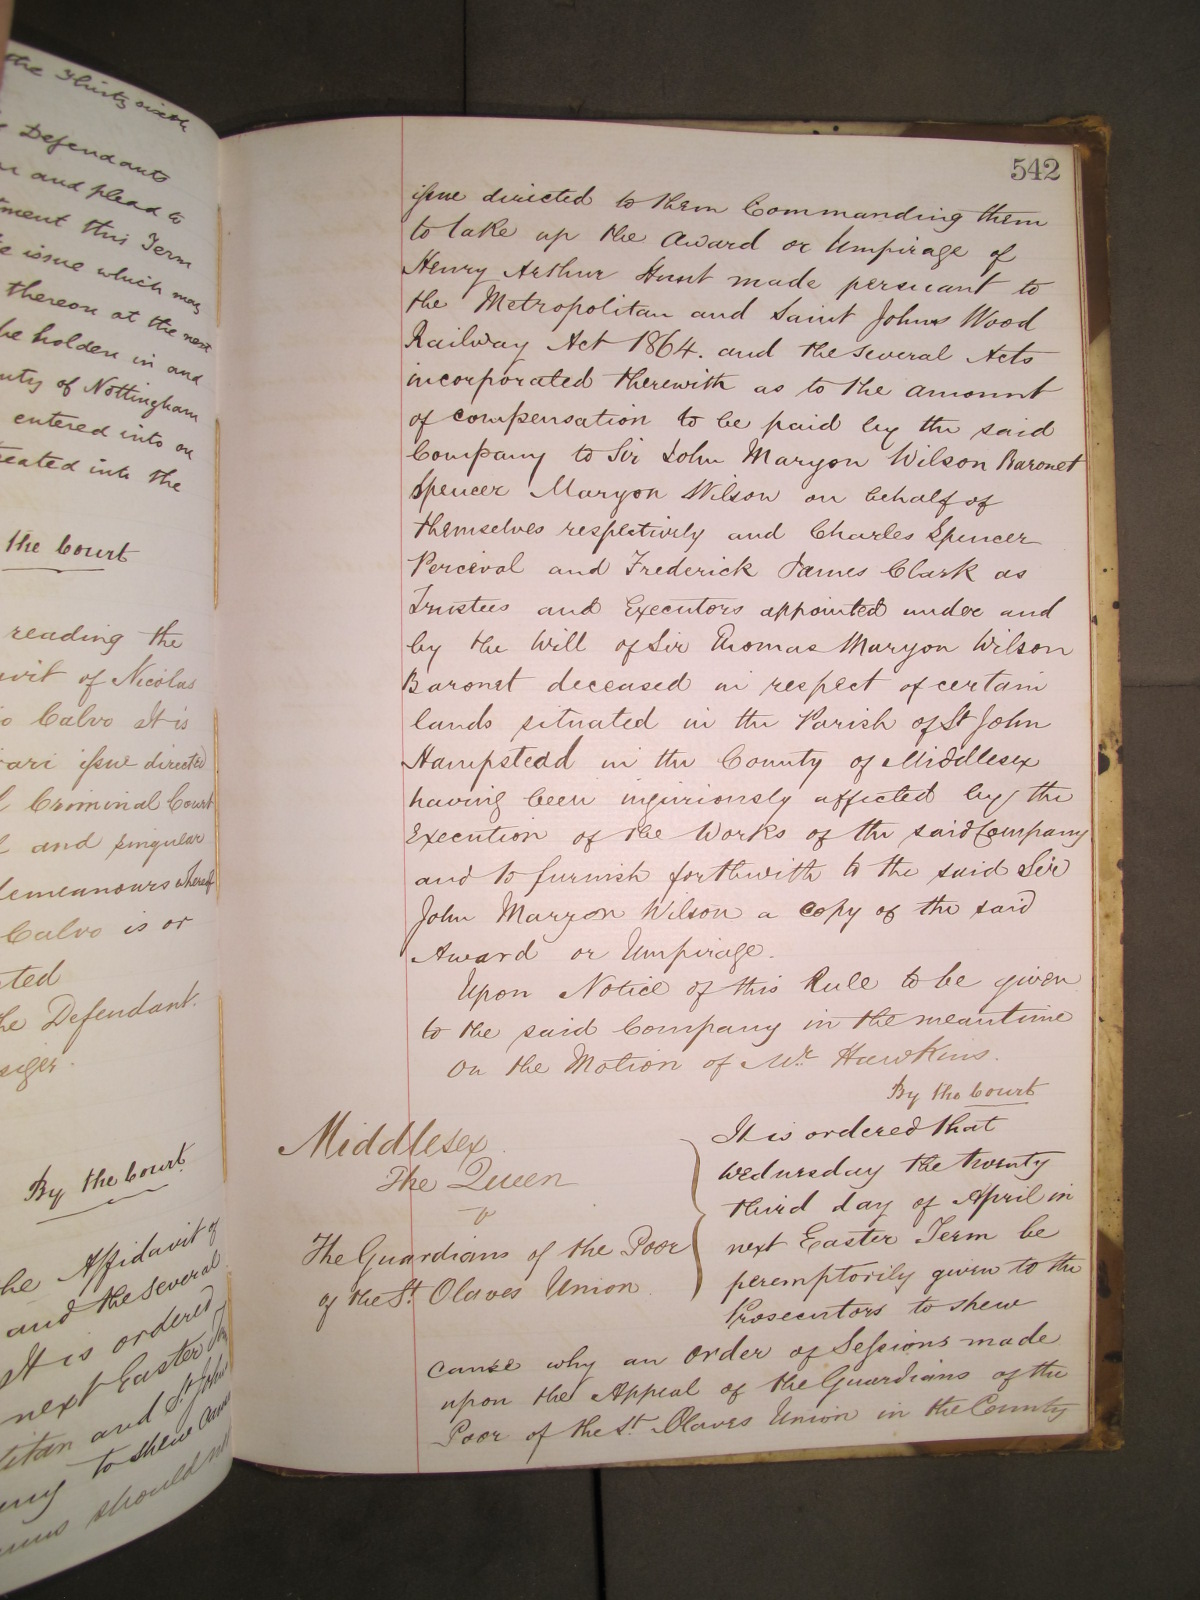 the Thirty sixth
Defendants
and plead to
this Term
issue which may
thereon at the next
be holden in and
of Nottingham
entered into or
into the
the Court
reading the
of Nicolas
Calvo It is
issue directed
Criminal Court
and singular
whereof
Calvo is or
the Defendant.
By the Court
the Affidavit of
and the several
It is ordered
next Easter
and St John
to shew cause
should not
542
issue directed to them Commanding them
to take up the Award or Umpirage of
Henry Arthur Hunt made persuant to
the Metropolitan and Saint Johns Wood
Railway Act 1864. and the several Acts
incorporated therewith as to the amount
of compensation to be paid by the said
Company to Sir John Maryon Wilson Baronet
Spencer Maryon Wilson on behalf of
themselves respectively and Charles Spencer
Perceval and Frederick James Clark as
Trustees and Executors appointed under and
by the Will of Sir Thomas Maryon Wilson
Baronet deceased in respect of certain
lands situated in the Parish of St John
Hampstead in the County of Middlesex
having been injuriously affected by the
Execution of the Works of the said Company
and to furnish forthwith to the said Sir
John Maryon Wilson a copy of the said
Award or Umpirage.
Upon Notice of this Rule to be given
to the said Company in the meantime
On the Motion of Mr. Hawkins.
By the Court
Middlesex
The Queen
v
The Guardians of the Poor
of the St. Olaves Union
It is ordered that
Wednesday the twenty
third day of April in
next Easter Term be
peremptorily given to the
Prosecutors to shew
cause why an Order of Sessions made
upon the Appeal of the Guardians of the
Poor of the St. Olaves Union in the County